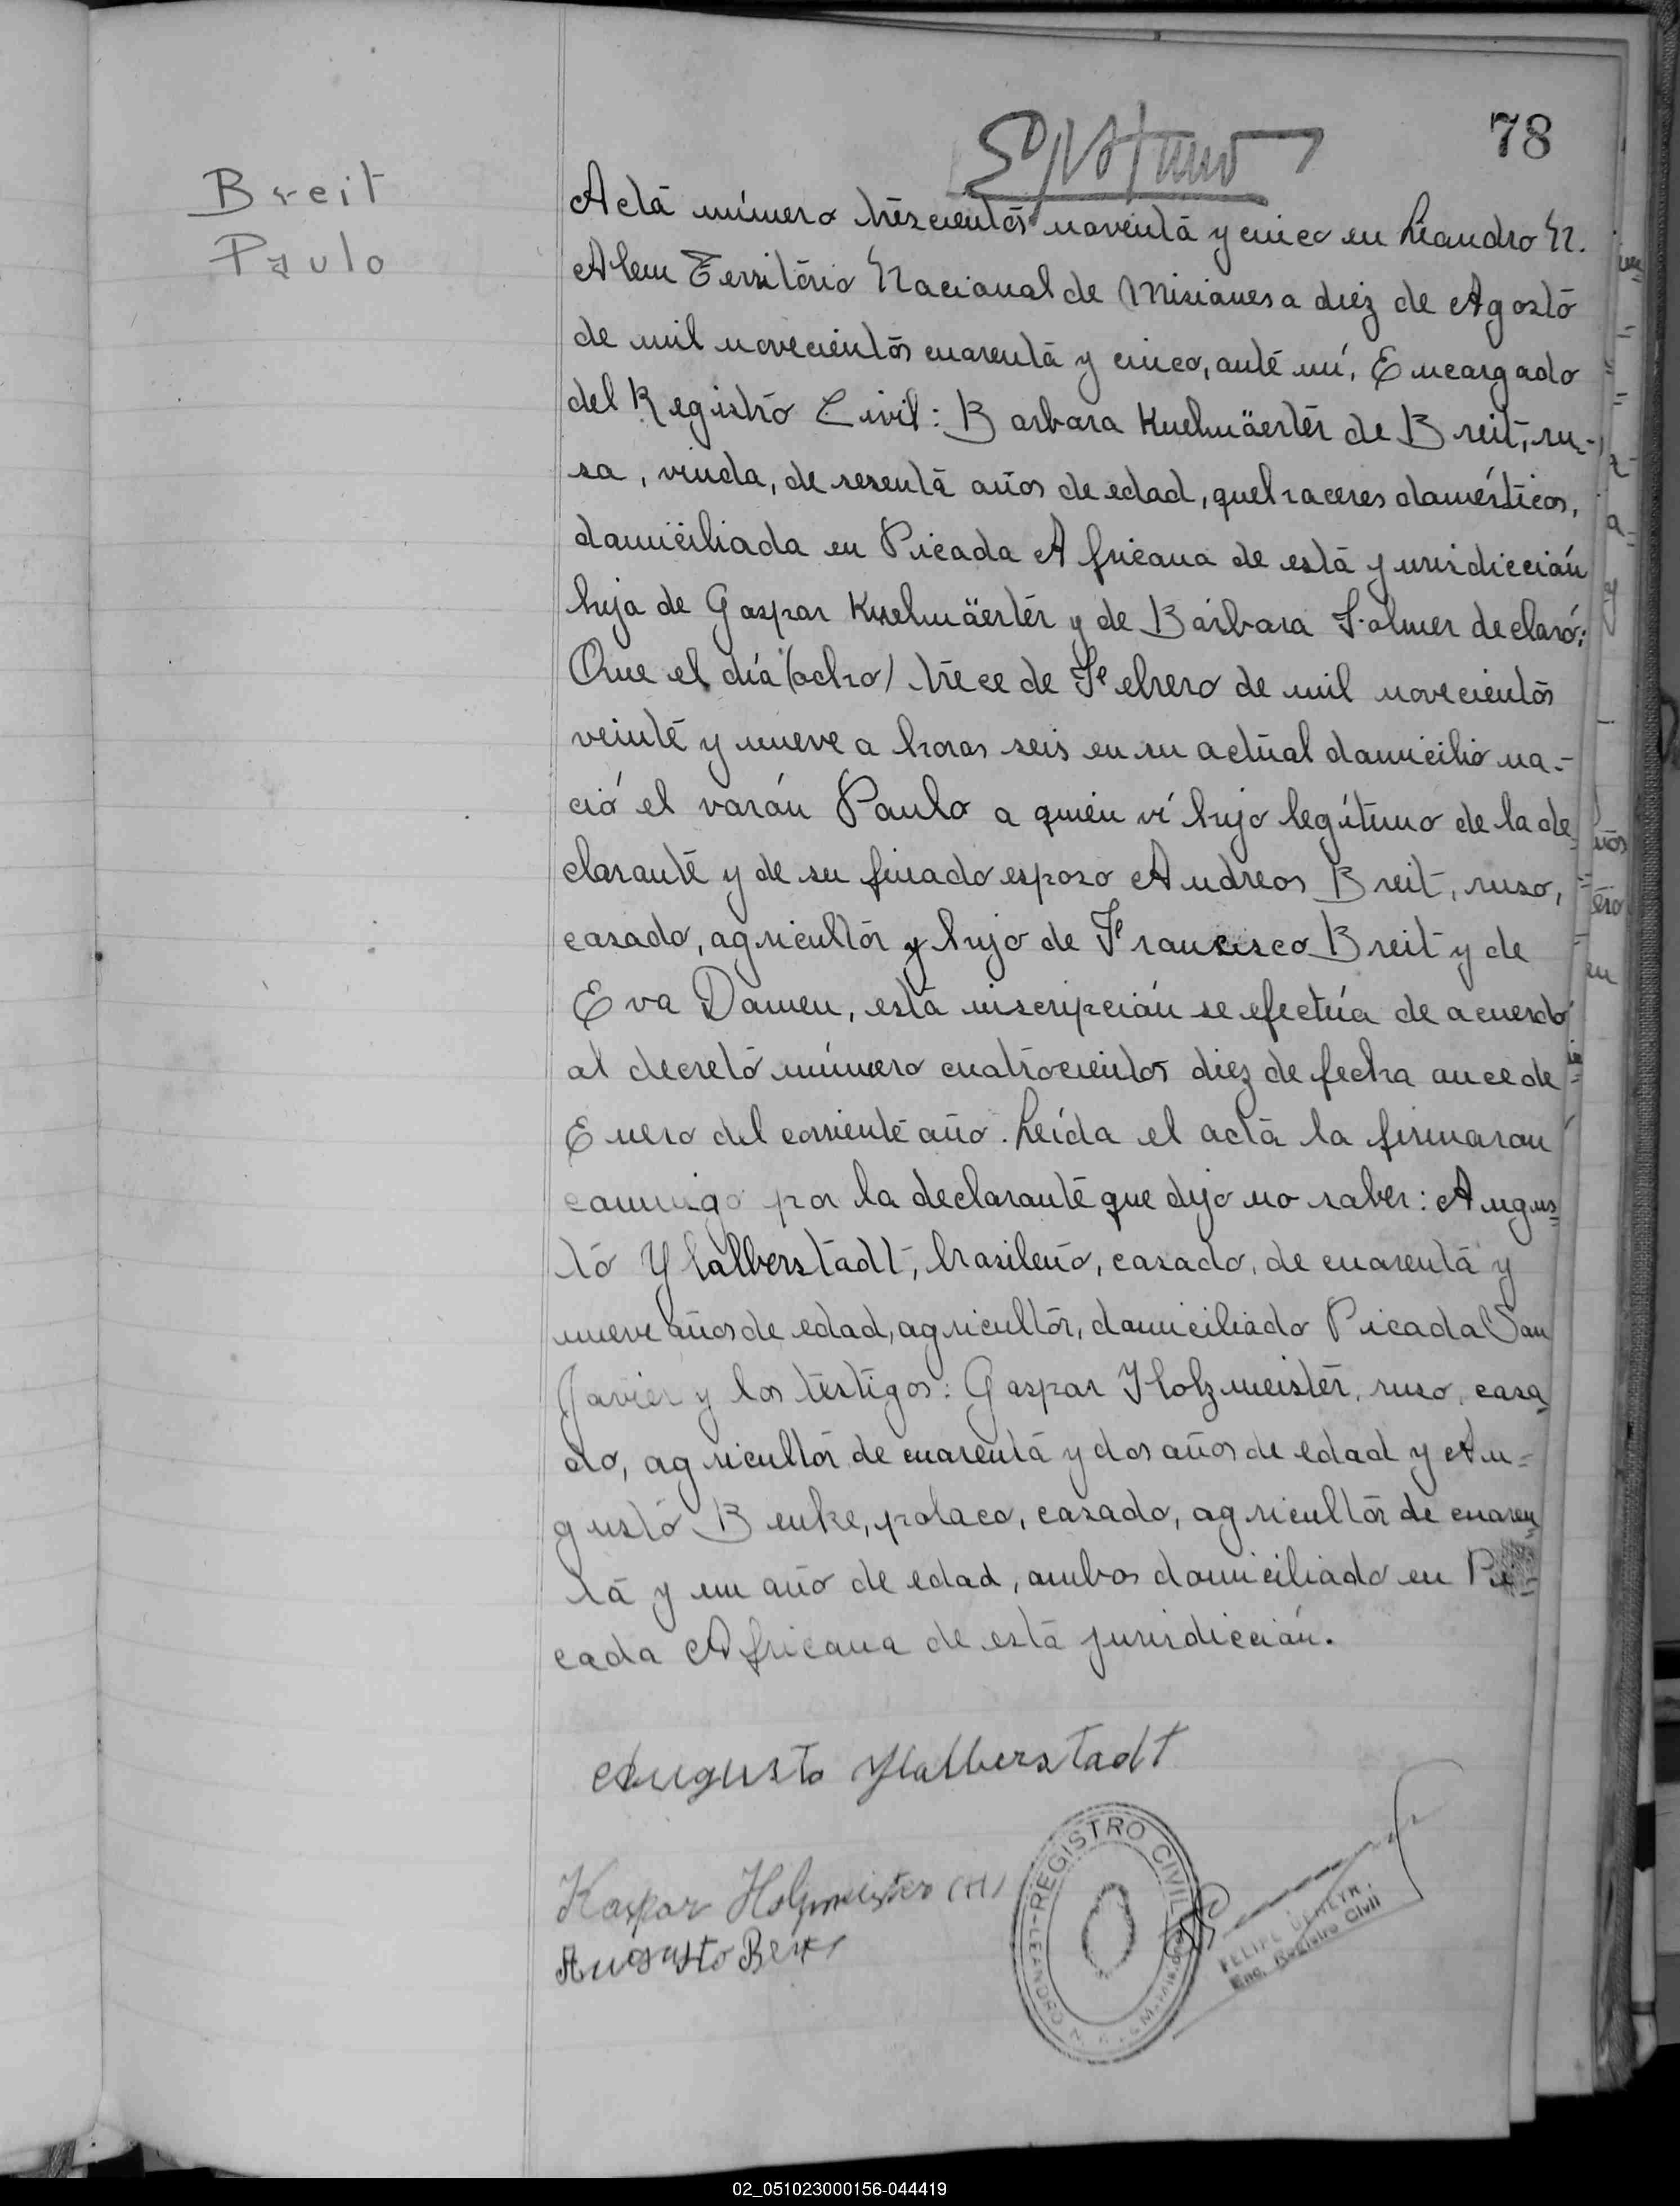 78
Breit
Paulo
Acta número trescientos noventa y cinco en Leandro N.
Alem Território Nacional de Misiones a diez de Agosto
de mil novecientos cuarenta y cinco, ante mí, Encargado
del Registro Civil: Barbara Kuehnäerter de Breit, ru-
sa, viuda, de sesenta años de edad, quehaceres domésticos,
domiciliada en Picada Africana de esta jurisdicción
hija de Gaspar Kuehnäerter y de Bárbara declaró:
Que el día (ocho) trece de Febrero de mil novecientos
veinte y nueve a horas seis en su actual domicilio na=
ció el varón Paulo a quien ví hijo legítimo de la de=
clarante y de su finado esposo Andreos Breit, ruso,
casado, agricultor y hijo de Francisco Breit y de
Eva Damen, esta inscripción se efectúa de acuerdo
al decreto número cuatrocientos diez de fecha once de
Enero del corriente año. Leída el acta la firmaron
conmigo por la declarante que dijo no saber: Augus=
to Halberstadt, brasileño, casado, de cuarenta y
nueve años de edad, agricultor, domiciliado Picada San
Javier y los testigos: Gaspar Holzmeister, ruso, casa=
do, agricultor de cuarenta y dos años de edad y Au=
gusto Benke, polaco, casado, agricultor de cuaren=
ta y un año de edad, ambos domiciliado en Pi=
cada Africana de esta jurisdicción.
Augusto Halberstadt
Kaspar Holzmeister (H)
Augusto
REGISTRO CIVIL
LEANDRO N.
FELIPE
Enc. Registro Civil
02_051023000156-044419